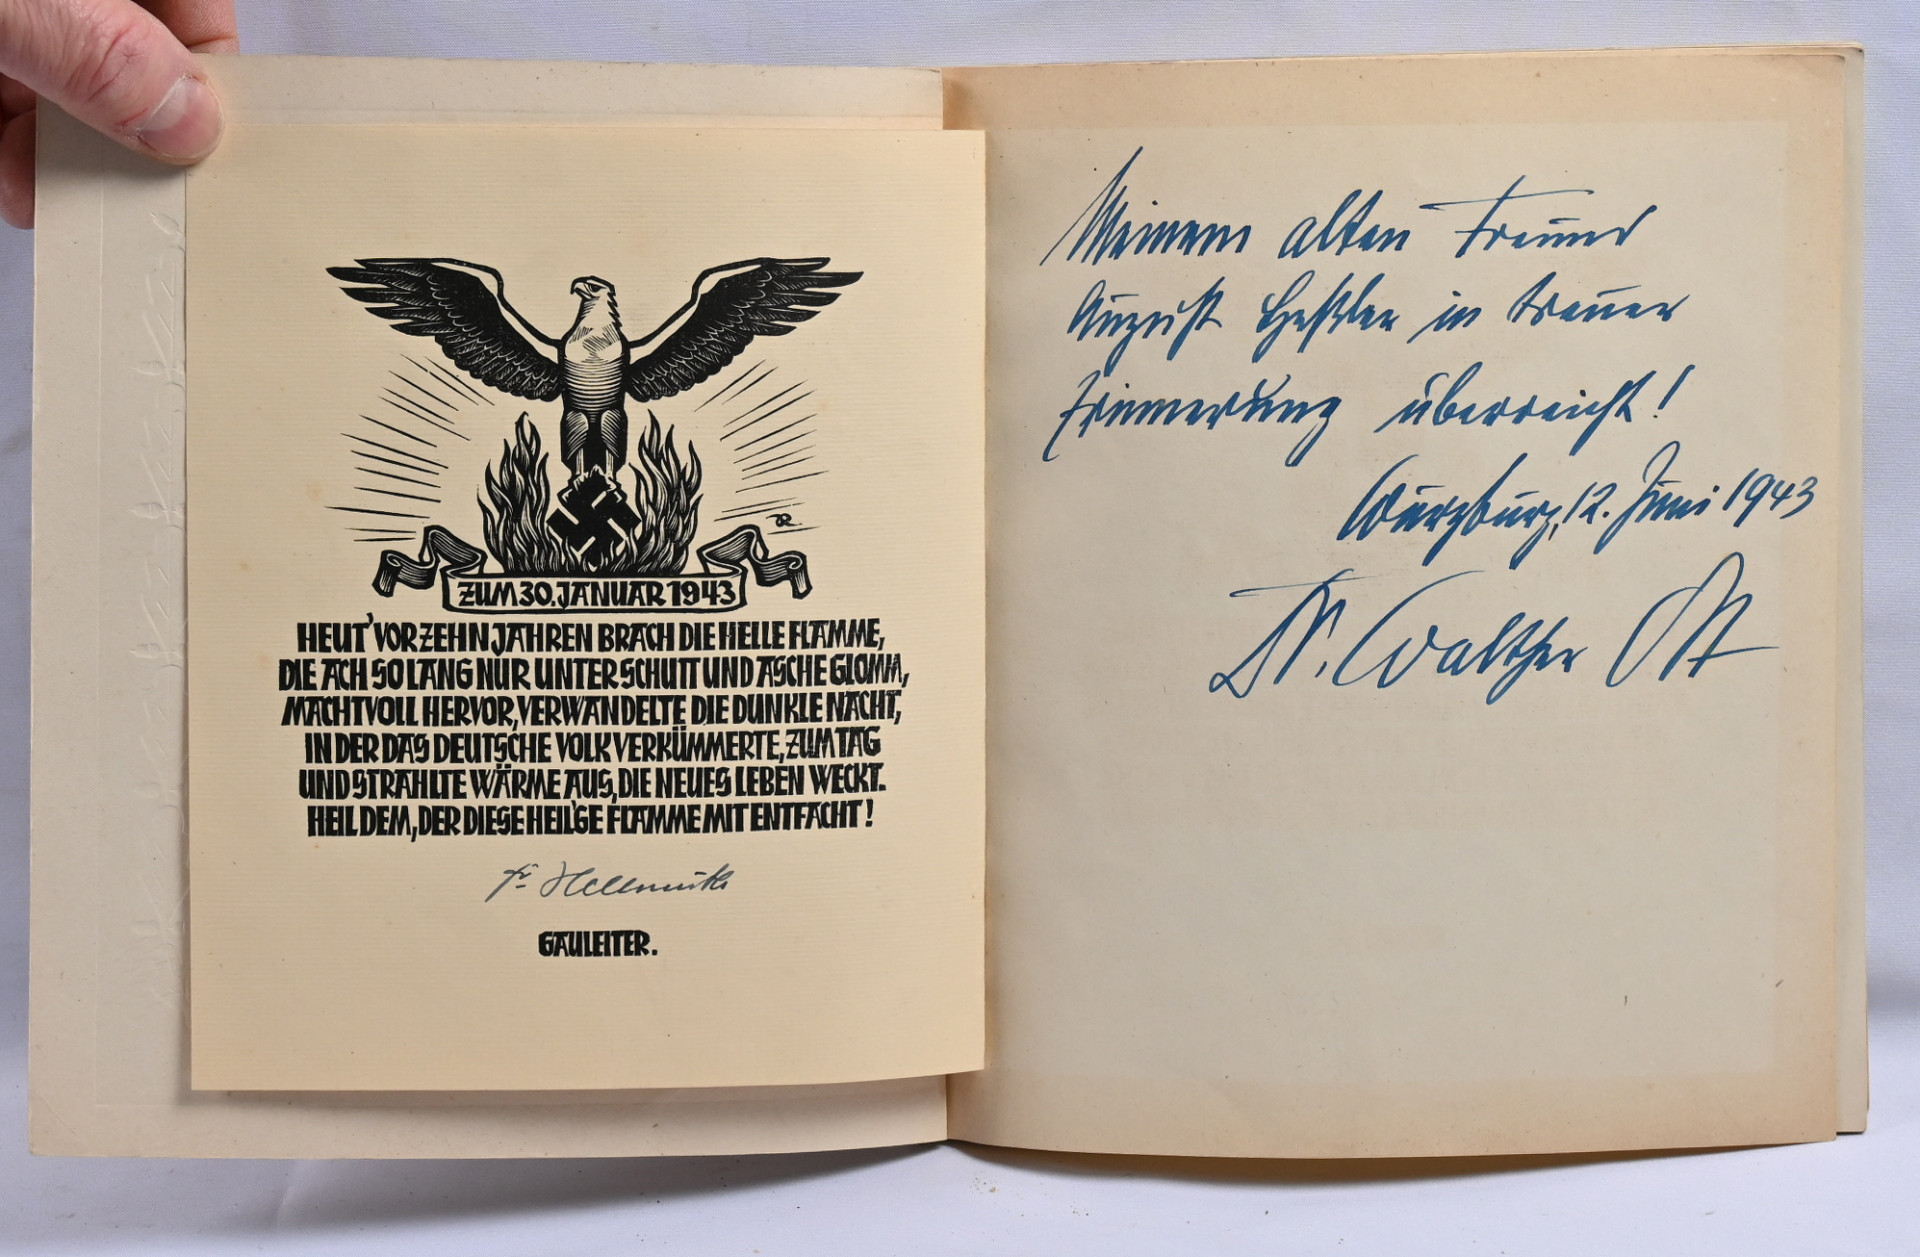 ZUM 30. JANUAR 1943
HEUT' VOR ZEHN JAHREN BRACH DIE HELLE FLAMME,
DIE ACH SO LANG NUR UNTER SCHUTT UND ASCHE GLOMM,
MACHTVOLL HERVOR, VERWANDELTE DIE DUNKLE NACHT,
IN DER DAS DEUTSCHE VOLK VERKÜMMERTE, ZUM TAG
UND STRAHLTE WÄRME AUS, DIE NEUES LEBEN WECKT.
HEIL DEM, DER DIESE HEIL'GE FLAMME MIT ENTFACHT!
Hellmuth
GAULEITER.
Meinem alten Freund
August in treuer
Erinnerung überreicht!
Würzburg, 12. Juni 1943
Dr. Walther Ott